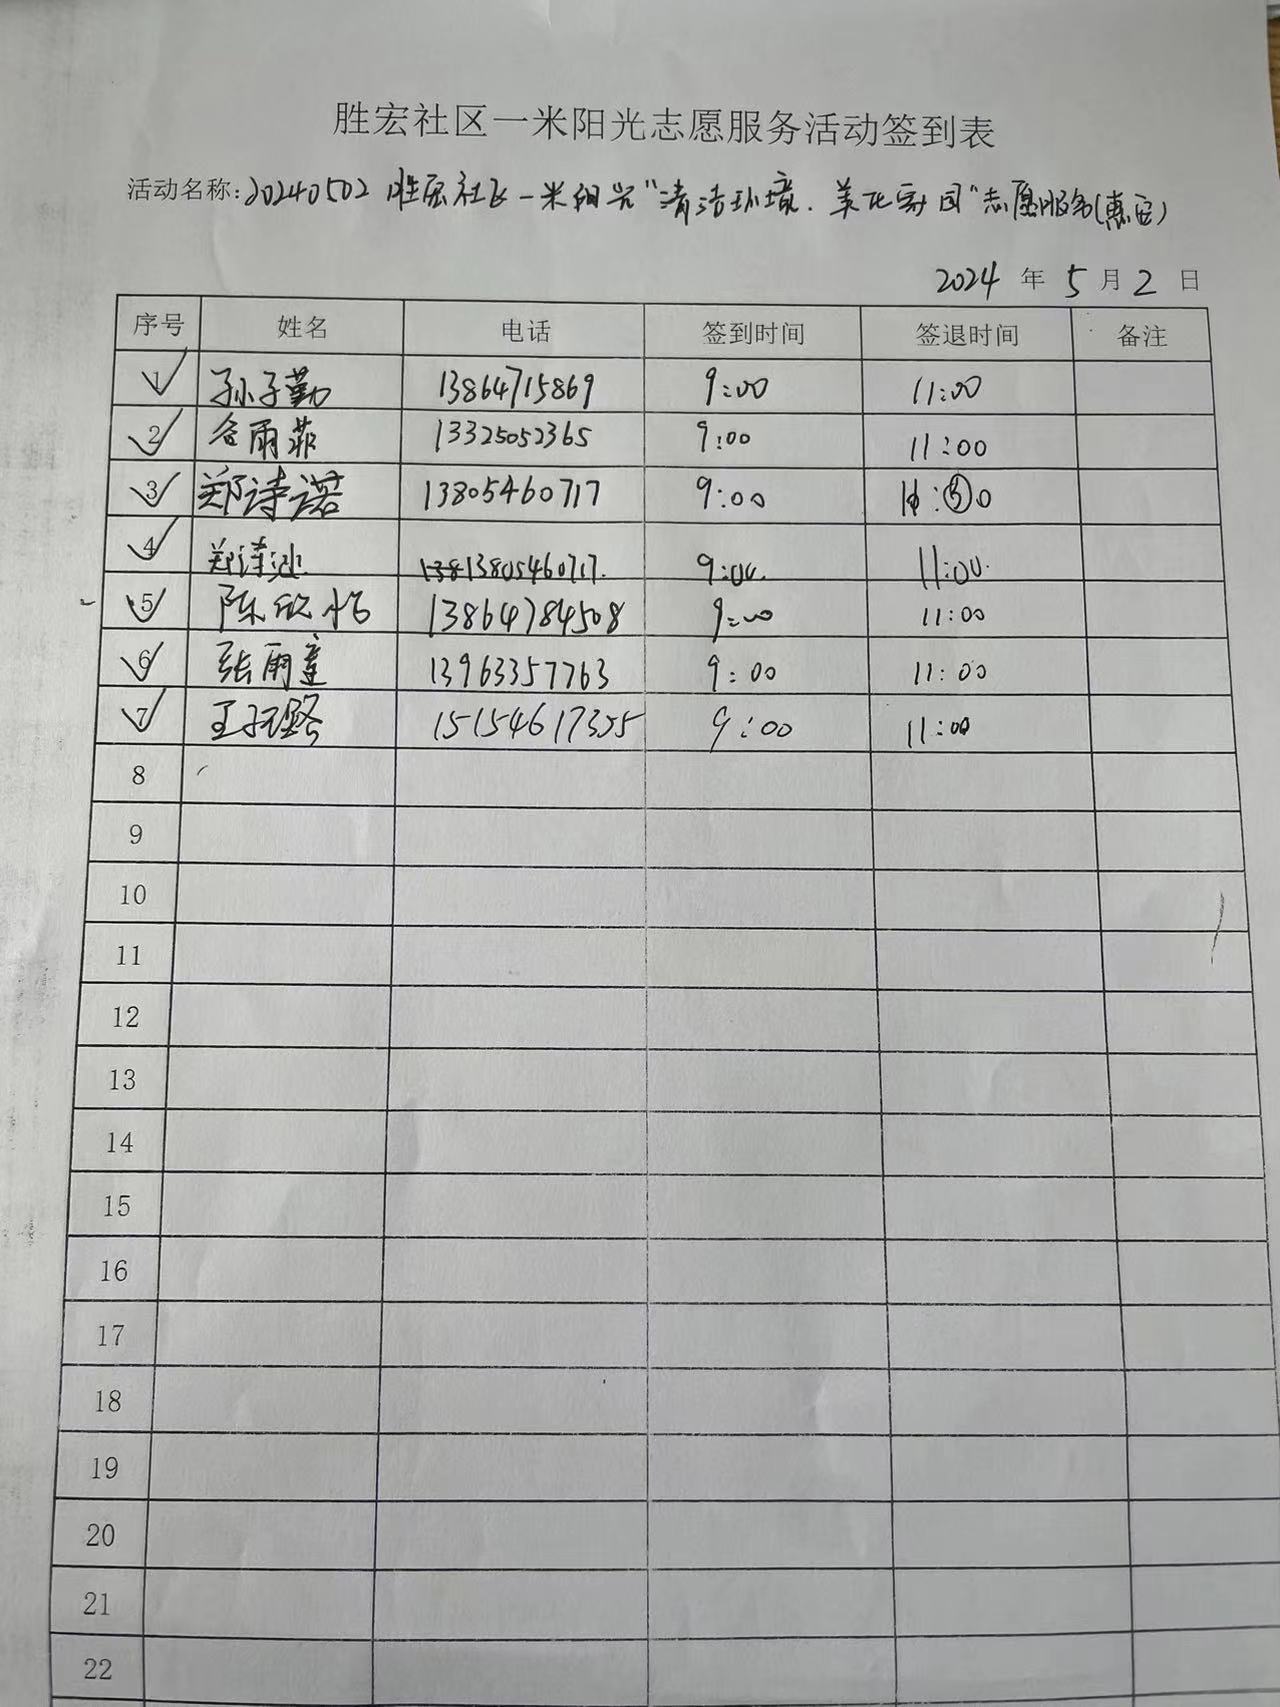 胜宏社区一米阳光志愿服务活动签到表
活动名称:20240502 胜宏社区一米阳光"清洁环境、美化家园"志愿服务(惠安)
2024 年 5 月 2 日
序号 姓名 电话 签到时间 签退时间 备注
1 孙子勤 13864715869 9:00 11:00
2 谷雨菲 13325052365 9:00 11:00
3 郑诗诺 13805460717 9:00
4 郑诗 13805460717. 9:00. 11:00.
5 陈欣怡 13864784508 9:00 11:00
6 张雨 13963357763 9:00 11:00
7 王 15154617355 9:00 11:00
8
9
10
11
12
13
14
15
16
17
18
19
20
21
22